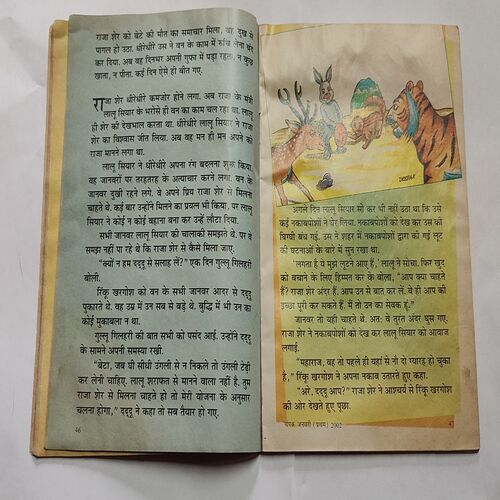 राजा शेर को बेटे की मौत का समाचार मिला, वह दुख से
पागल हो उठा. धीरेधीरे उस ने वन के काम में रुचि लेना बंद
कर दिया. अब वह दिनभर अपनी गुफा में पड़ा रहता. न कुछ
खाता, न पीता. कई दिन ऐसे ही बीत गए.
राजा शेर धीरेधीरे कमजोर होने लगा. अब राजा के मंत्री
लालू सियार के भरोसे ही वन का काम चल रहा था. लालू
ही शेर की देखभाल करता था. धीरेधीरे लालू सियार ने राजा
शेर का विश्वास जीत लिया. अब वह मन ही मन अपने को
राजा मानने लगा था.
लालू सियार ने धीरेधीरे अपना रंग बदलना शुरू किया.
वह जानवरों पर तरहतरह के अत्याचार करने लगा. वन के
जानवर दुखी रहने लगे. वे अपने प्रिय राजा शेर से मिलना
चाहते थे. कई बार उन्होंने मिलने का प्रयत्न भी किया, पर लालू
सियार ने कोई न कोई बहाना बना कर उन्हें लौटा दिया.
सभी जानवर लालू सियार की चालाकी समझते थे. पर वे
समझ नहीं पा रहे थे कि राजा शेर से कैसे मिला जाए.
“क्यों न हम ददुदू से सलाह लें?” एक दिन गुल्लू गिलहरी
बोली.
रिंकू खरगोश को वन के सभी जानवर आदर से ददुदू
पुकारते थे. वह उम्र में उन सब से बड़े थे. बुद्धि में भी उन का
कोई मुकाबला न था.
गुल्लू गिलहरी की बात सभी को पसंद आई. उन्होंने ददुदू
के सामने अपनी समस्या रखी.
“बेटा, जब घी सीधी उंगली से न निकले तो उंगली टेढ़ी
कर लेनी चाहिए. लालू शराफत से मानने वाला नहीं है. तुम
राजा शेर से मिलना चाहते हो तो मेरी योजना के अनुसार
चलना होगा,” ददुदू ने कहा तो सब तैयार हो गए.
46
अगले दिन लालू सियार सो कर भी नहीं उठा था कि उसे
कई नकाबपोशों ने घेर लिया. नकाबपोशों को देख कर उस की
घिग्घी बंध गई. उस ने शहर में नकाबपोशों द्वारा की गई लूट
की घटनाओं के बारे में सुन रखा था.
'लगता है ये मुझे लूटने आए हैं,' लालू ने सोचा. फिर खुद
को बचाने के लिए हिम्मत कर के बोला, “आप क्या चाहते
हैं? राजा शेर अंदर हैं. आप उन से बात कर लें. वे ही आप की
इच्छा पूरी कर सकते हैं. मैं तो उन का सेवक हूं.”
जानवर तो यही चाहते थे. अत: वे तुरंत अंदर घुस गए.
राजा शेर ने नकाबपोशों को देख कर लालू सियार को आवाज
लगाई.
“महाराज, वह तो पहले ही यहां से नौ दो ग्यारह हो चुका
है,” रिंकू खरगोश ने अपना नकाब उतारते हुए कहा.
“अरे, ददुदू आप?” राजा शेर ने आश्चर्य से रिंकू खरगोश
की ओर देखते हुए पूछा.
चंपक, जनवरी (प्रथम) 2002
47